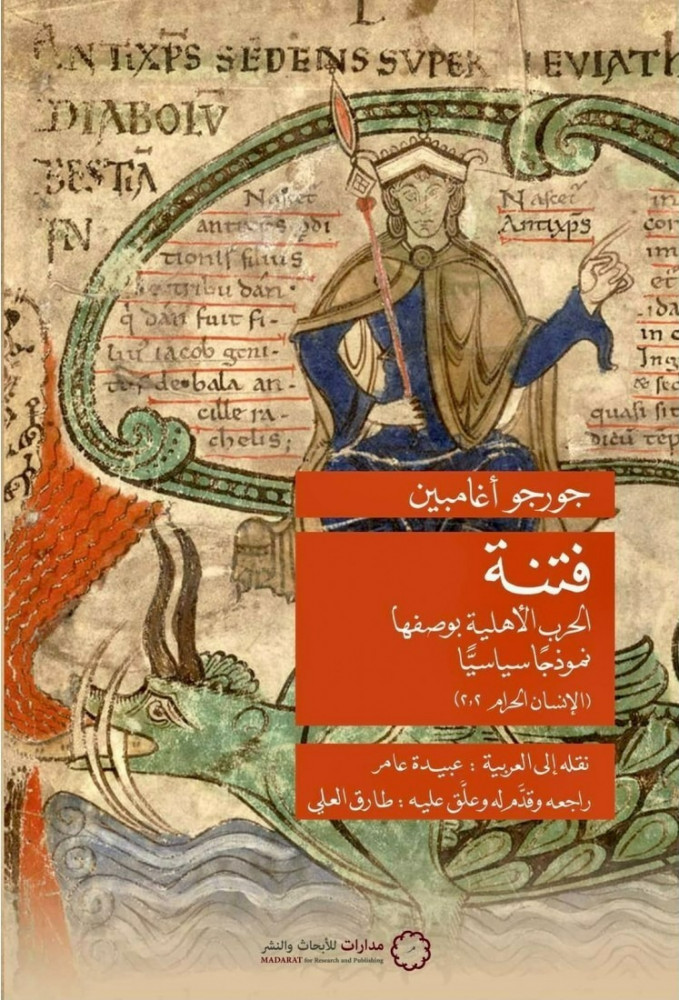 L
ANTIXP̄S SEDENS SUPER LEVIATH
DIABOLŪ
BESTIĀ
IN
Nascet̄
antixp̄s p̄di
tionis filius
de tribu dán·
q̇ dán fuit fi-
liuˀ iacob geni-
tuˀ de bala an-
cille ra-
chelis;
Nascet̄
Antixp̄s
in
cor
im
et
ida
in c
Ing
& sec
quasi sit
dicū tēp
جورجو أغامبين
فتنة
الحرب الأهلية بوصفها
نموذجًا سياسيًّا
(الإنسان الحرام ٢،٢)
نقله إلى العربية : عبيدة عامر
راجعه وقدَّم له وعلَّق عليه : طارق العلي
مدارات للأبحاث والنشر
MADARAT for Research and Publishing